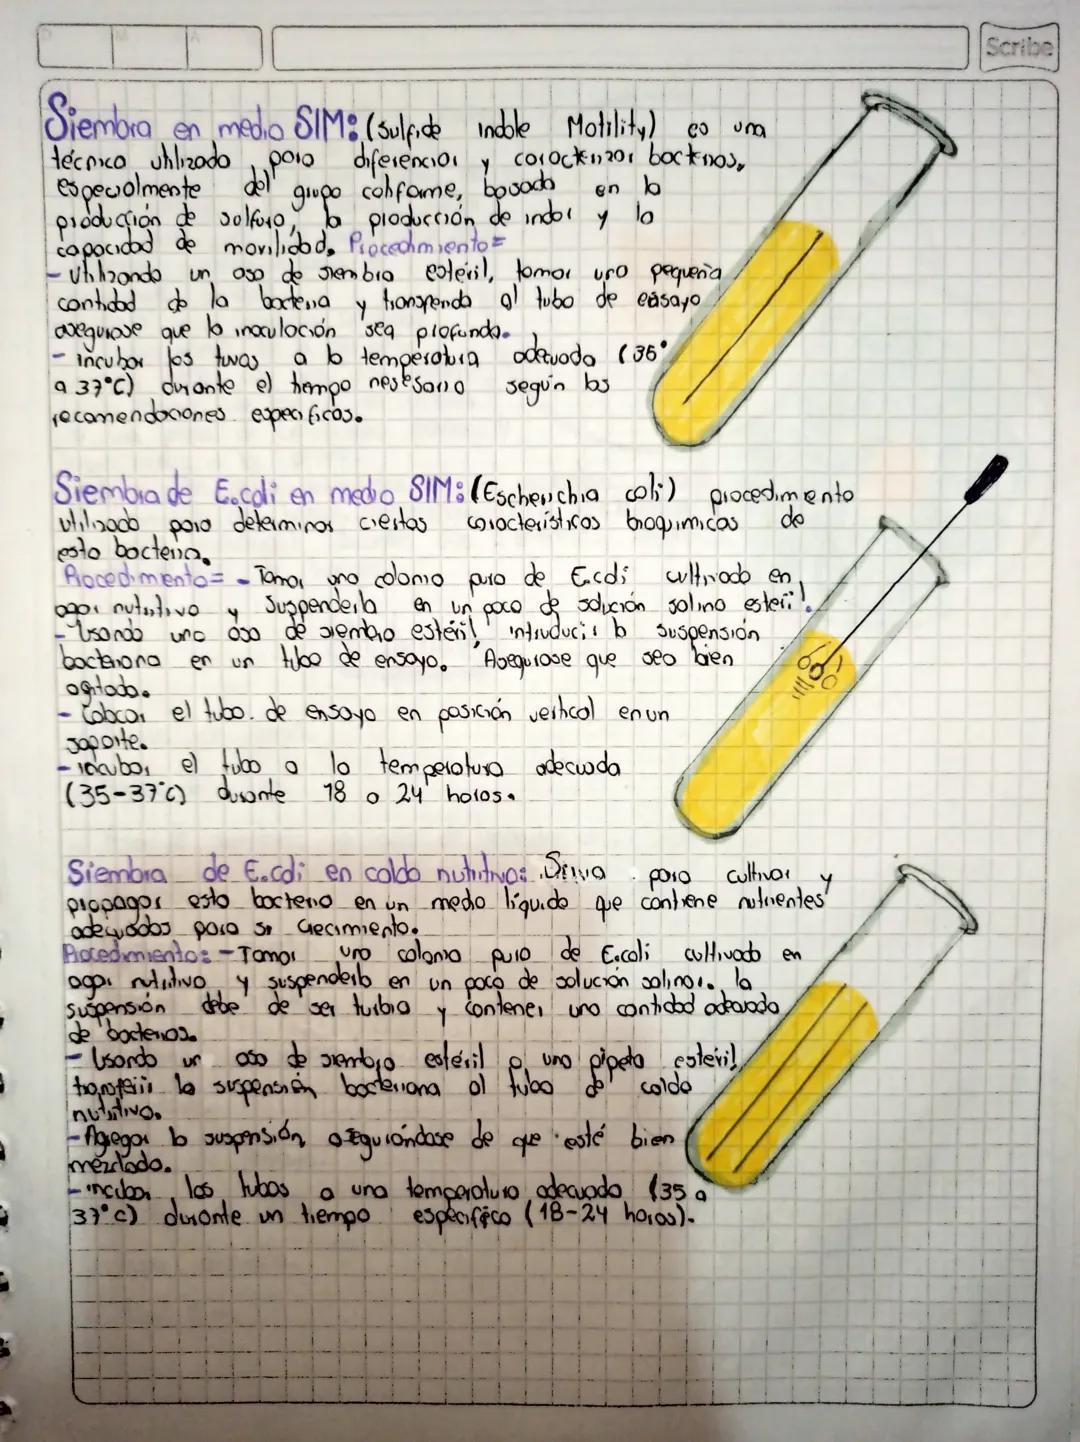 Scribe
Siembra en medio SIM: (Sulfide indole Motility) es una
técnica utilizada para diferenciar y caracterizar bacterias,
especialmente del grupo coliforme, basada en la
producción de sulfuro, la producción de indol y la
capacidad de movilidad. Procedimiento=
- Utilizando un asa de siembra estéril, tomar una pequeña
cantidad de la bacteria y transfierela al tubo de ensayo
asegurase que la inoculación sea profunda.
- incubar los tuvos a la temperatura adecuada (35°
a 37°C) durante el tiempo nesesario según las
recomendaciones especificas.
Siembra de E.coli en medio SIM: (Escherichia coli) procedimiento
utilizado para determinar ciertas características bioquimicas de
esta bacteria.
Procedimiento= - Tomar una colonia pura de E.coli cultivada en
agar nutritivo y suspenderla en un poco de solución salina esteril.
- Usando una asa de siembra estéril, introducir la suspensión
bacteriana en un tubo de ensayo. Asegurase que sea bien
agitada.
- Colocar el tubo de ensayo en posición vertical en un
soporte.
- incubar el tubo a la temperatura adecuada
(35-37°C) durante 18 a 24 horas.
Siembra de E.coli en caldo nutritivo: Sirva para cultivar y
propagar esta bacteria en un medio líquido que contiene nutrientes
adecuados para su crecimiento.
Procedimiento: - Tomar una colonia pura de E.coli cultivada en
agar nutritivo y suspenderla en un poco de solución salina. la
suspensión debe de ser turbia y contener una cantidad adecuada
de bacterias.
- Usando un asa de siembra estéril o una pipeta estéril,
transferir la suspensión bacteriana al tubo de caldo
nutritivo.
- Agregar la suspensión, asegurándose de que esté bien
mezclada.
- incubar los tubos a una temperatura adecuada (35 a
37°C) durante un tiempo especifico (18-24 horas).